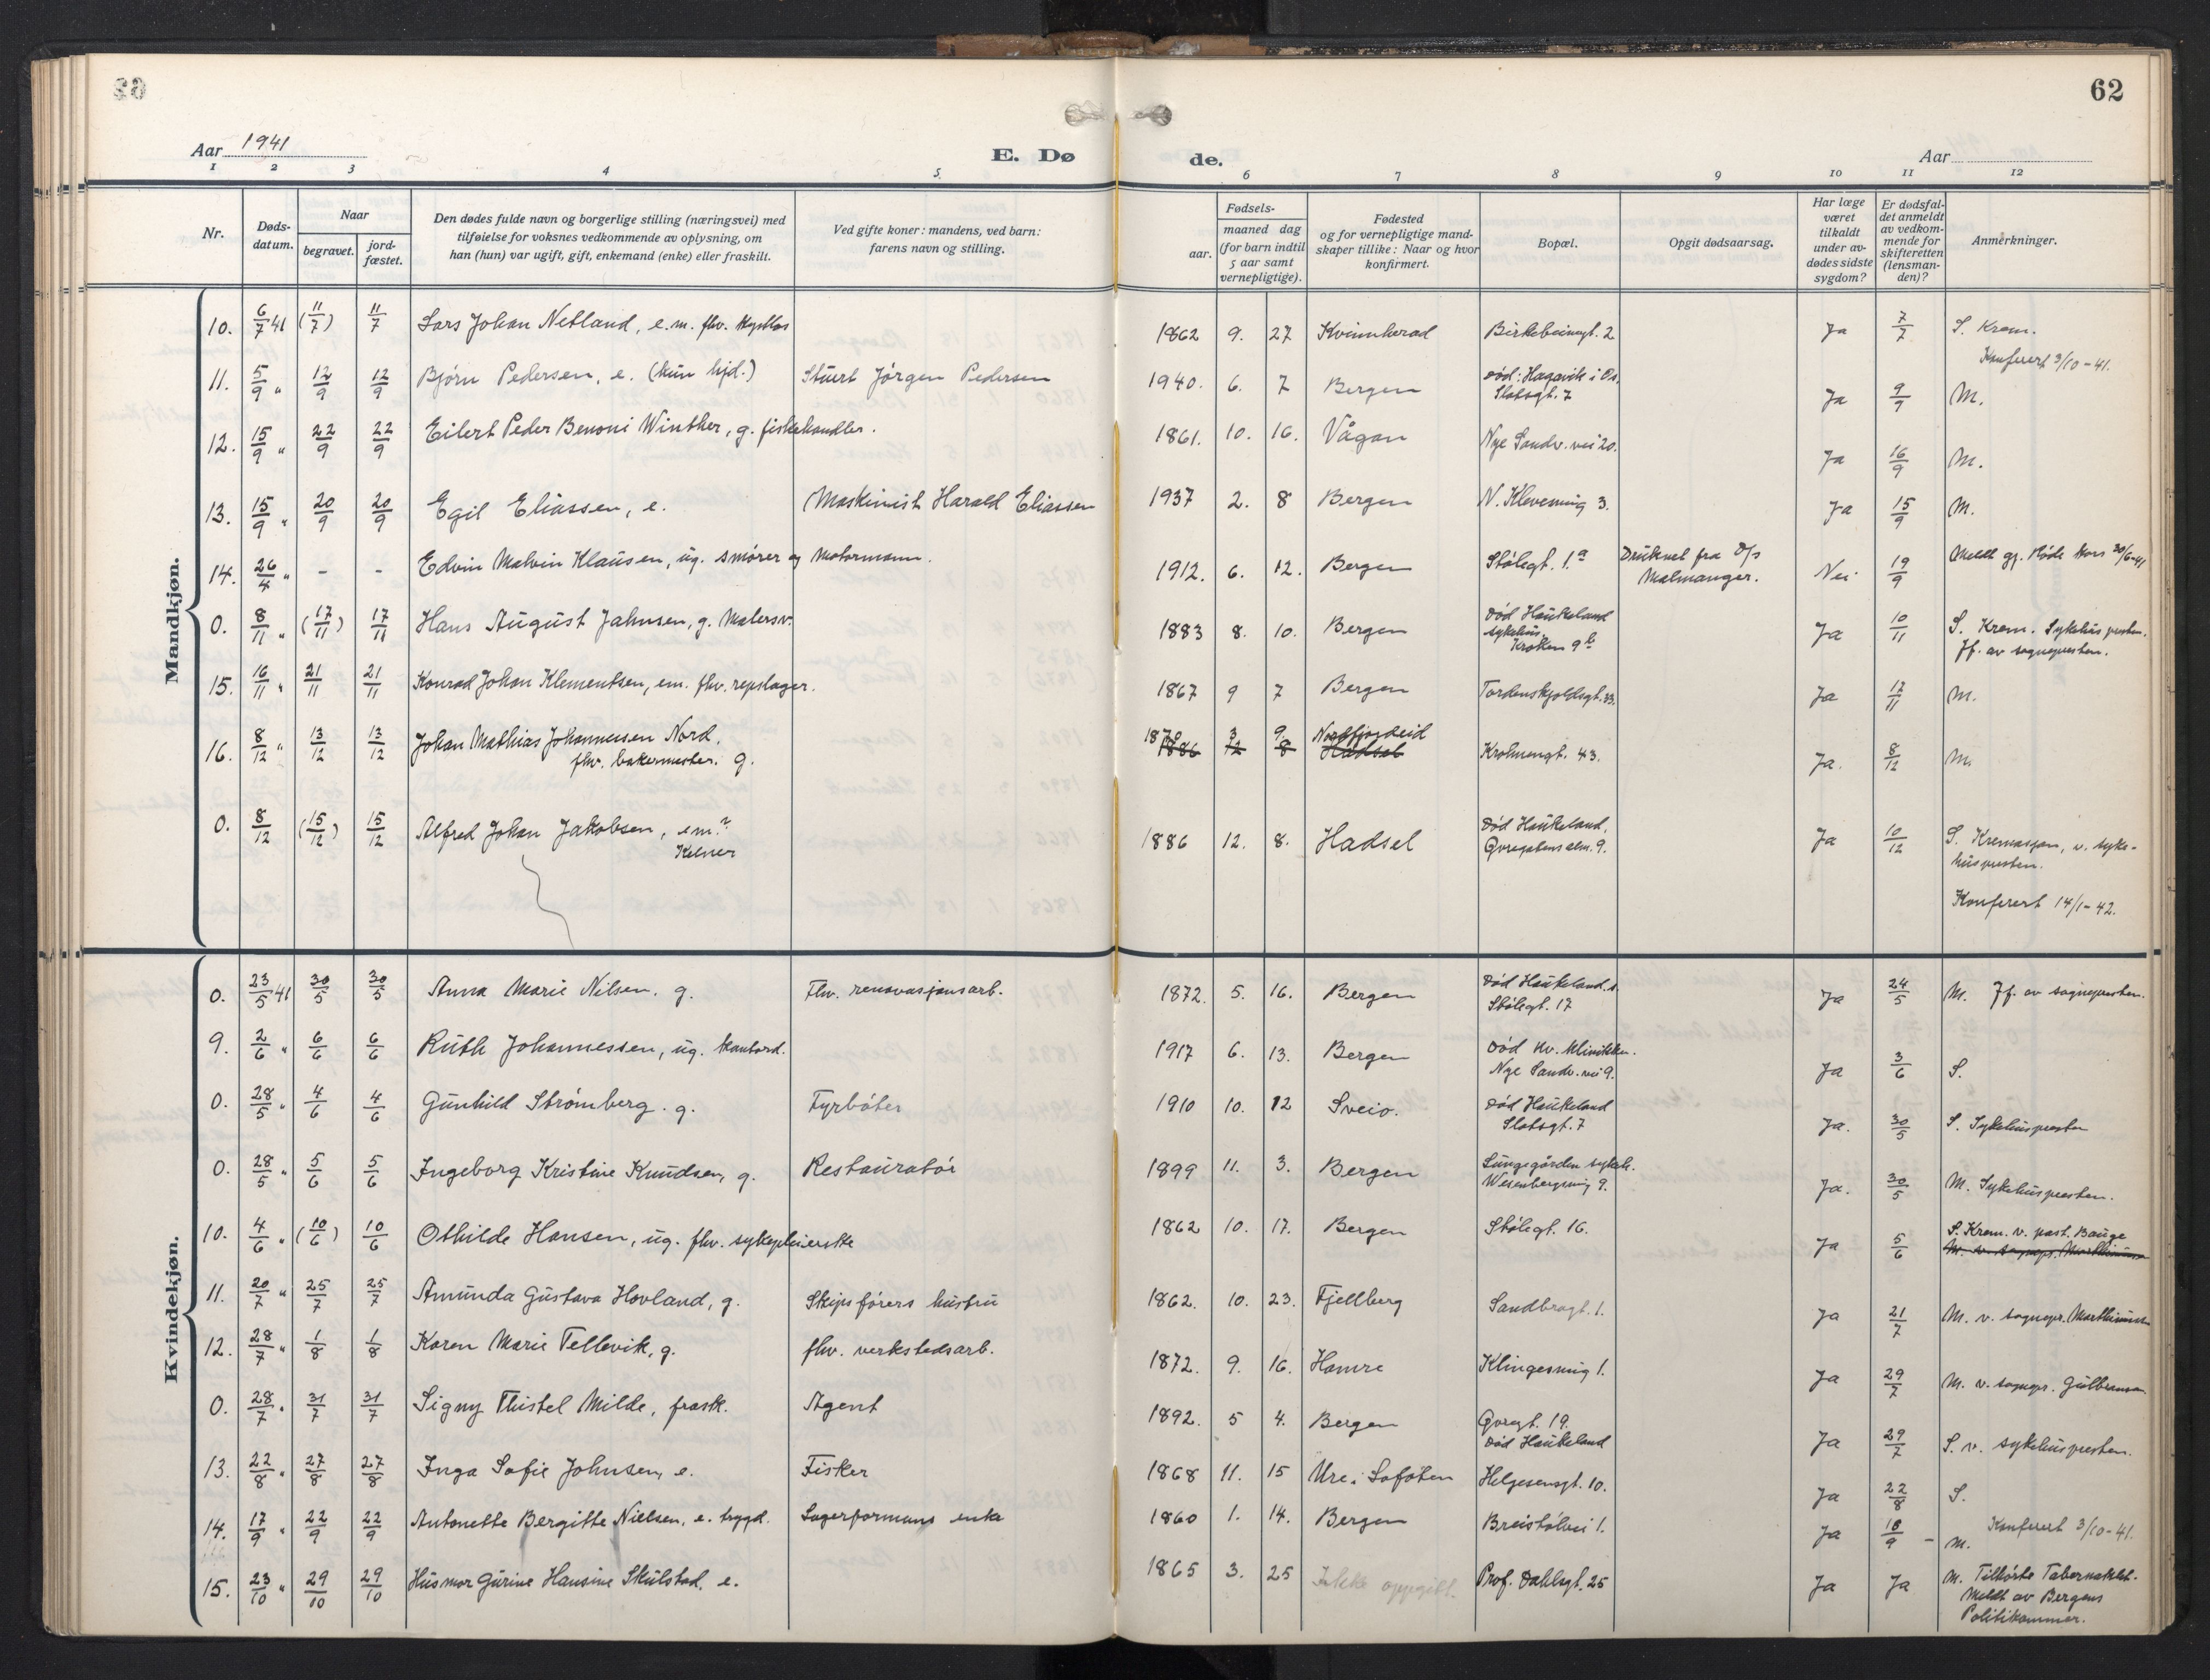 62
Aar 1941
E. Dø
de.
Aar
1 2 3 4 5 6 7 8 9 10 11 12
Nr.
Døds-
datum.
Naar
begravet.
jord-
fæstet.
Den dødes fulde navn og borgerlige stilling (næringsvei) med
tilføielse for voksnes vedkommende av oplysning, om
han (hun) var ugift, gift, enkemand (enke) eller fraskilt.
Ved gifte koner: mandens, ved barn:
farens navn og stilling.
Fødsels-
aar.
maaned dag
(for barn indtil
5 aar samt
vernepligtige).
Fødested
og for vernepligtige mand-
skaper tillike: Naar og hvor
konfirmert.
Bopæl.
Opgit dødsaarsag.
Har læge
været
tilkaldt
under av-
dødes sidste
sygdom?
Er dødsfal-
det anmeldt
av vedkom-
mende for
skifteretten
(lensman-
den)?
Anmerkninger.
Mandkjøn.
10. 6/7 41 (11/7) 11/7 Lars Johan Netland, e.m. fhv. 1862 9. 27 Kvinnherad Birkebeinergt. 2 Ja 7/7 S. Krem.
Konferert 3/10-41.
11. 5/9 " 12/9 12/9 Bjørn Pedersen, e. (kun hjd.) Stuert Jørgen Pedersen 1940. 6. 7 Bergen død: Hagavik i Os. Ja 9/9 M.
Slotsgt. 7
12. 15/9 " 22/9 22/9 Eilert Peder Benoni Winther, g. fiskehandler. 1861. 10. 16. Vågan Nye Sandv. vei 20. Ja 16/9 M.
13. 15/9 " 20/9 20/9 Egil Eliassen, e. Maskinist Harald Eliassen 1937 2. 8 Bergen N. Klevesmug 3. Ja 15/9 M.
14. 26/4 " - - Edvin Malvin Klausen, ug. smører og Motormann. 1912. 6. 12. Bergen Stølegt. 1.a Druknet fra D/s Nei 19/9 Meldt gj. Røde Kors 30/6-41
Malmanger.
0. 8/11 " (17/11) 17/11 Hans August Jahnsen, g. Malersv. 1883 8. 10. Bergen død Haukeland Ja 10/11 S. Krem. Sykehuspresten.
sykehus.
Kroken 9b
Jf. av sognepresten.
15. 16/11 " 21/11 21/11 Konrad Johan Klementsen, em. fhv. repslager. 1867 9 7 Bergen Tordenskjoldsgt. 33. Ja 17/11 M.
16. 8/12 " 13/12 13/12 Johan Mathias Johannessen Nord, 1870 3 9. Nordfjordeid Krohnengt. 43. Ja. 8/12 M.
fhv. bakermester. g. 1886 12 8 Hadsel
0. 8/12 (15/12) 15/12 Alfred Johan Jakobsen, em.? 1886 12. 8. Hadsel død Haukeland. Ja 10/12 S. Kremasjon, v. syke-
Kelner
Øvregatens alm. 9.
huspresten.
Konferert 14/1-42.
Kvindekjøn.
0. 23/5 41 30/5 30/5 Anna Marie Nilsen. g. Fhv. renovasjonsarb. 1872. 5. 16. Bergen død Haukeland. s. Ja 24/5 M. Jf. av sognepresten.
Stølegt. 17
9. 2/6 " 6/6 6/6 Ruth Johannessen, ug. kontord. 1917 6. 13. Bergen død Kv. klinikken. Ja 3/6 S.
Nye Sandv. vei 9.
0. 28/5 " 4/6 4/6 Gunhild Strømberg. g. Fyrbøter 1910 10. 12 Sveio. død Haukeland Ja. 30/5 S. Sykehuspresten
Slotsgt. 7
0. 28/5 " 5/6 5/6 Ingeborg Kristine Knudsen, g. Restauratør 1899 11. 3. Bergen Lungegården sykeh. Ja. 30/5 M. Sykehuspresten.
Wesenbergsmug 9.
10. 4/6 " (10/6) 10/6 Othilde Hansen, ug. fhv. sykepleierske 1862 10. 17. Bergen Stølegt. 16. Ja 5/6 S. Krem. v. past. Bauge
M. v. sognepr. Marthinussen
11. 20/7 " 25/7 25/7 Amunda Gustava Hovland, g. Skipsførers hustru 1862. 10. 23. Fjellberg Sandbrogt. 1. Ja 21/7 M. v. sognepr. Marthinussen
12. 28/7 " 1/8 1/8 Karen Marie Tellevik, g. fhv. verkstedsarb. 1872. 9. 16. Hamre Klingesmug 1. Ja 29/7 M. v. sognepr. Gulbransen.
0. 28/7 " 31/7 31/7 Signy Thistel Milde, frask. Agent 1892. 5 4. Bergen Øvregt. 19. Ja 29/7 S. v. sykehuspresten.
død Haukeland
13. 22/8 " 27/8 27/8 Inga Sofie Johnsen, e. Fisker 1868 11. 15 Ure i Lofoten Helgesensgt. 10. Ja 22/8 S.
14. 17/9 " 22/9 22/9 Antonette Bergitte Nielsen, e. trygd. Lagerformans enke 1860 1. 14. Bergen Breistølvei 1. Ja 18/9 - M. Konferert 3/10-41.
15. 23/10 " 29/10 29/10 Husmor Gurine Hansine Skulstad. e. 1865 3. 25 Ikke oppgitt. Prof. Dahlsgt. 25 Ja Ja M. Tilhørte Tabernaklet.
Meldt av Bergens
Politikammer.